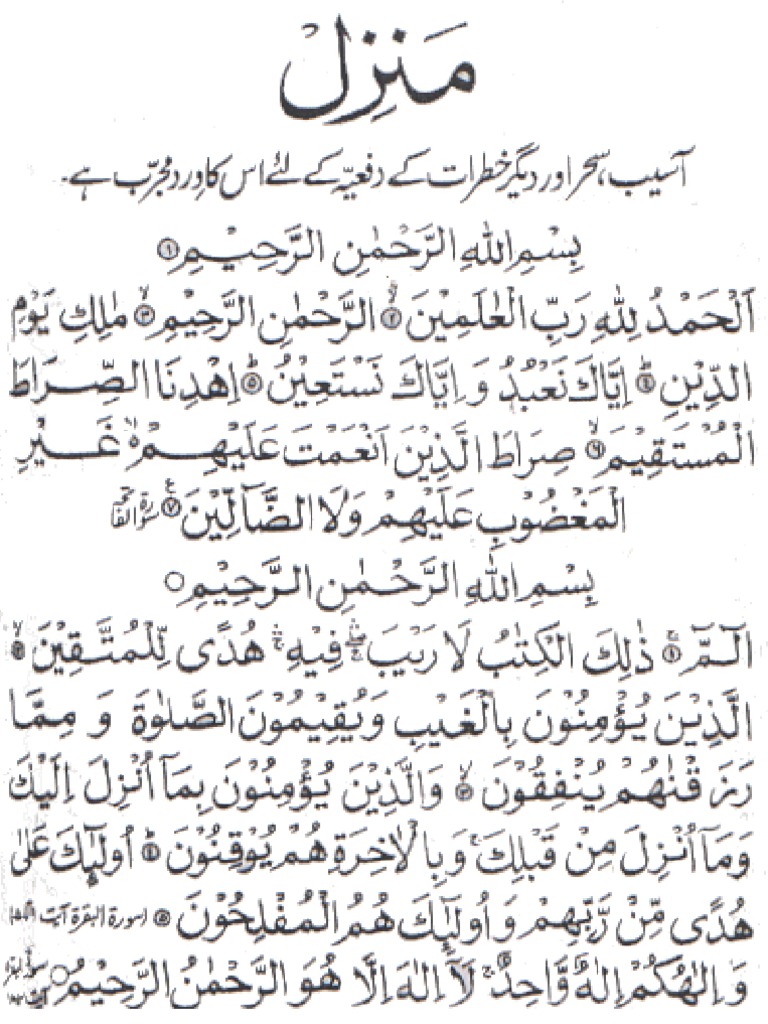 مَنزِل
آسیب، سحر اور دیگر خطرات کے دفعیہ کے لئے اس کا وِرد مجرّب ہے۔
بِسْمِ اللهِ الرَّحْمٰنِ الرَّحِيْمِ ۝۱
اَلْحَمْدُ لِلّٰهِ رَبِّ الْعٰلَمِيْنَ ۝۲ۙ الرَّحْمٰنِ الرَّحِيْمِ ۝۳ۙ مٰلِكِ يَوْمِ
الدِّيْنِ ۝۴ؕ اِيَّاكَ نَعْبُدُ وَ اِيَّاكَ نَسْتَعِيْنُ ۝۵ؕ اِهْدِنَا الصِّرَاطَ
الْمُسْتَقِيْمَ ۝۶ۙ صِرَاطَ الَّذِيْنَ اَنْعَمْتَ عَلَيْهِمْ ۙ غَيْرِ
الْمَغْضُوْبِ عَلَيْهِمْ وَلَا الضَّآلِّيْنَ ۝۷ سورۃ الفاتحہ
بِسْمِ اللهِ الرَّحْمٰنِ الرَّحِيْمِ ۝
الٓمّٓ ۝۱ۚ ذٰلِكَ الْكِتٰبُ لَا رَيْبَ ۛ فِيْهِ ۛ هُدًى لِّلْمُتَّقِيْنَ ۝۲ۙ
الَّذِيْنَ يُؤْمِنُوْنَ بِالْغَيْبِ وَيُقِيْمُوْنَ الصَّلٰوةَ وَ مِمَّا
رَزَقْنٰهُمْ يُنْفِقُوْنَ ۝۳ۙ وَالَّذِيْنَ يُؤْمِنُوْنَ بِمَآ اُنْزِلَ اِلَيْكَ
وَمَآ اُنْزِلَ مِنْ قَبْلِكَ ۚ وَبِالْاٰخِرَةِ هُمْ يُوْقِنُوْنَ ۝۴ؕ اُولٰٓئِكَ عَلٰى
هُدًى مِّنْ رَّبِّهِمْ وَ اُولٰٓئِكَ هُمُ الْمُفْلِحُوْنَ ۝۵ (سورة البقرة آیت
وَ اِلٰهُكُمْ اِلٰهٌ وَّاحِدٌ ۚ لَآ اِلٰهَ اِلَّا هُوَ الرَّحْمٰنُ الرَّحِيْمُ ۝